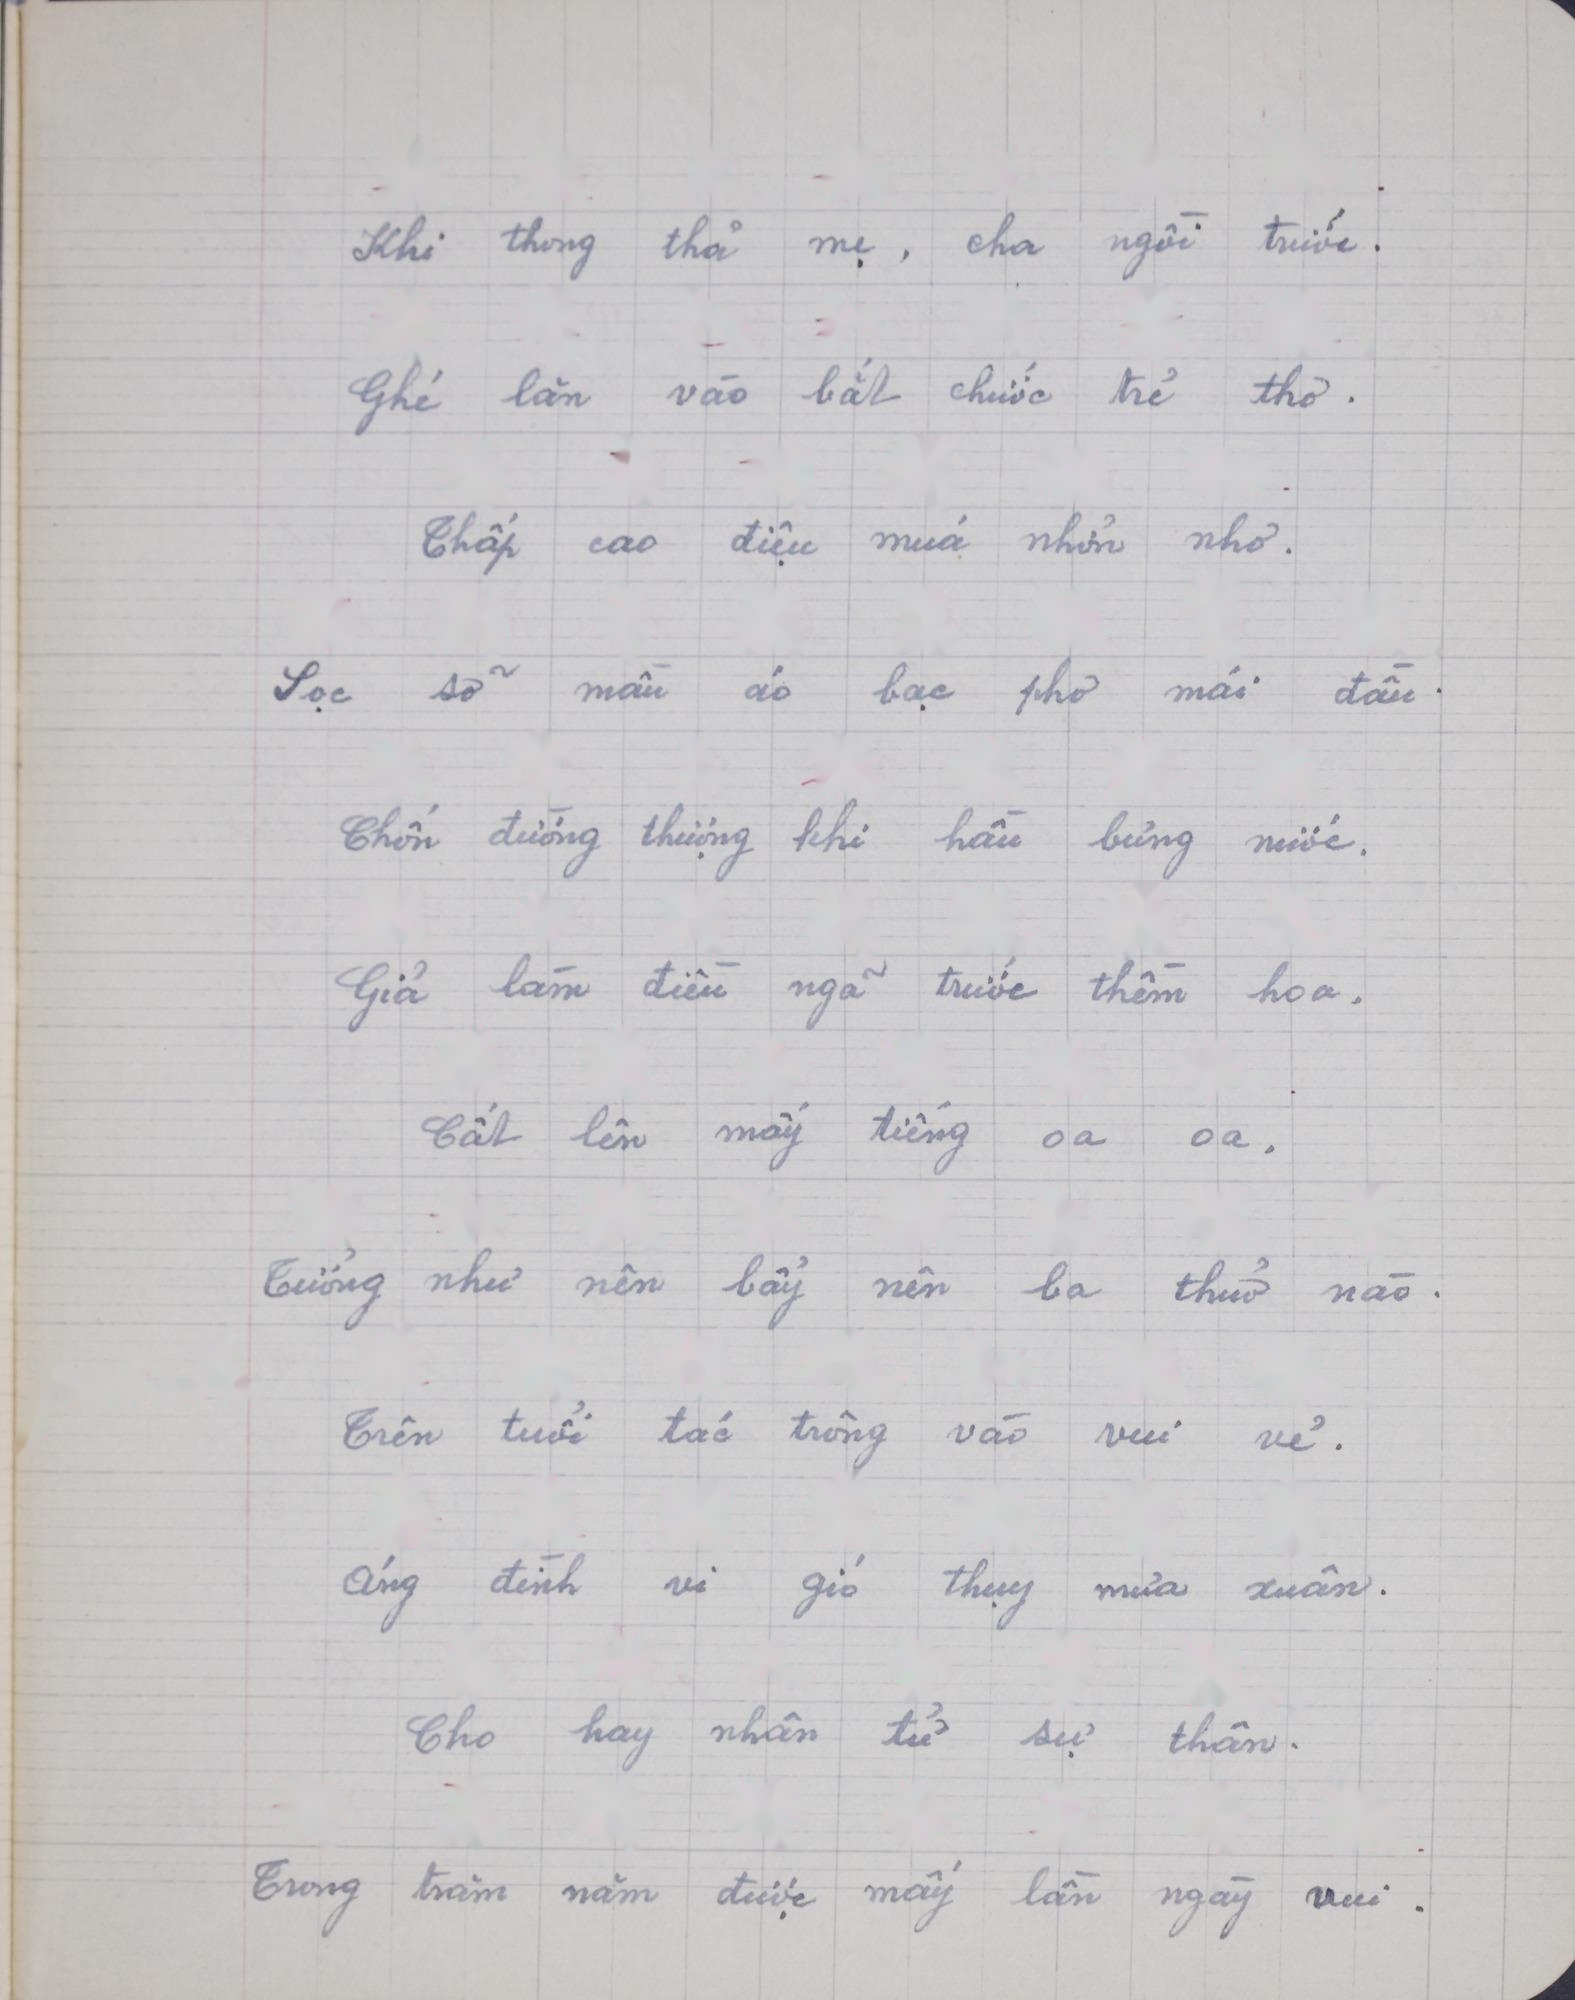 Khi thong thả mẹ, cha ngồi trước.
Ghé lăn vào bắt chước trẻ thơ.
Thấp cao điệu muá nhởn nhơ.
Sọc sỡ mầu áo bạc phơ mái đầu.
Chốn đường thượng khi hầu bưng nước.
Giả làm điều ngã trước thềm hoa.
Cất lên mấy tiếng oa oa.
Tưởng như nên bẩy nên ba thuở nào.
Trên tuổi tác trông vào vui vẻ.
Áng đình vi gió thụy mưa xuân.
Cho hay nhân tử sự thân.
Trong trăm năm được mấy lần ngày vui.